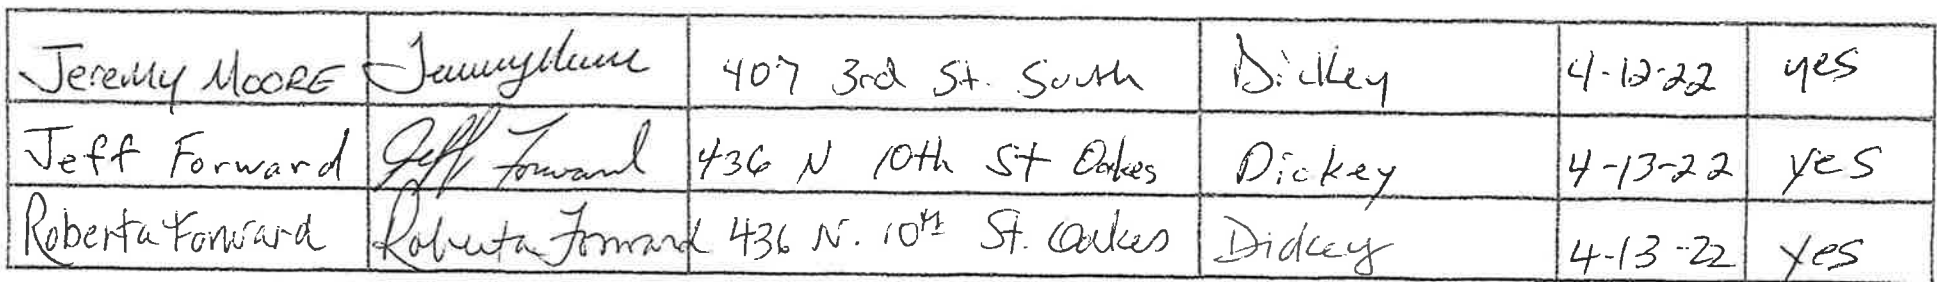 Jeremy MOORE Jeremy Moore 407 3rd St. South Dickey 4-12-22 yes
Jeff Forward Jeff Forward 436 N 10th St Oakes Dickey 4-13-22 yes
Roberta Forward Roberta Forward 436 N. 10th St. Oakes Dickey 4-13-22 yes